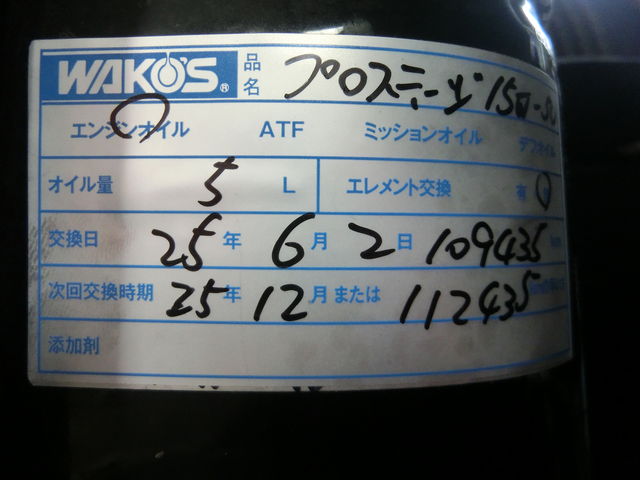 WAKO'S® 品名 プロステージ 15W-50
エンジンオイル ATF ミッションオイル デフオイル
オイル量 5 L エレメント交換 有
交換日 25年 6月 2日 109435 km
次回交換時期 25年 12月または 112435
添加剤